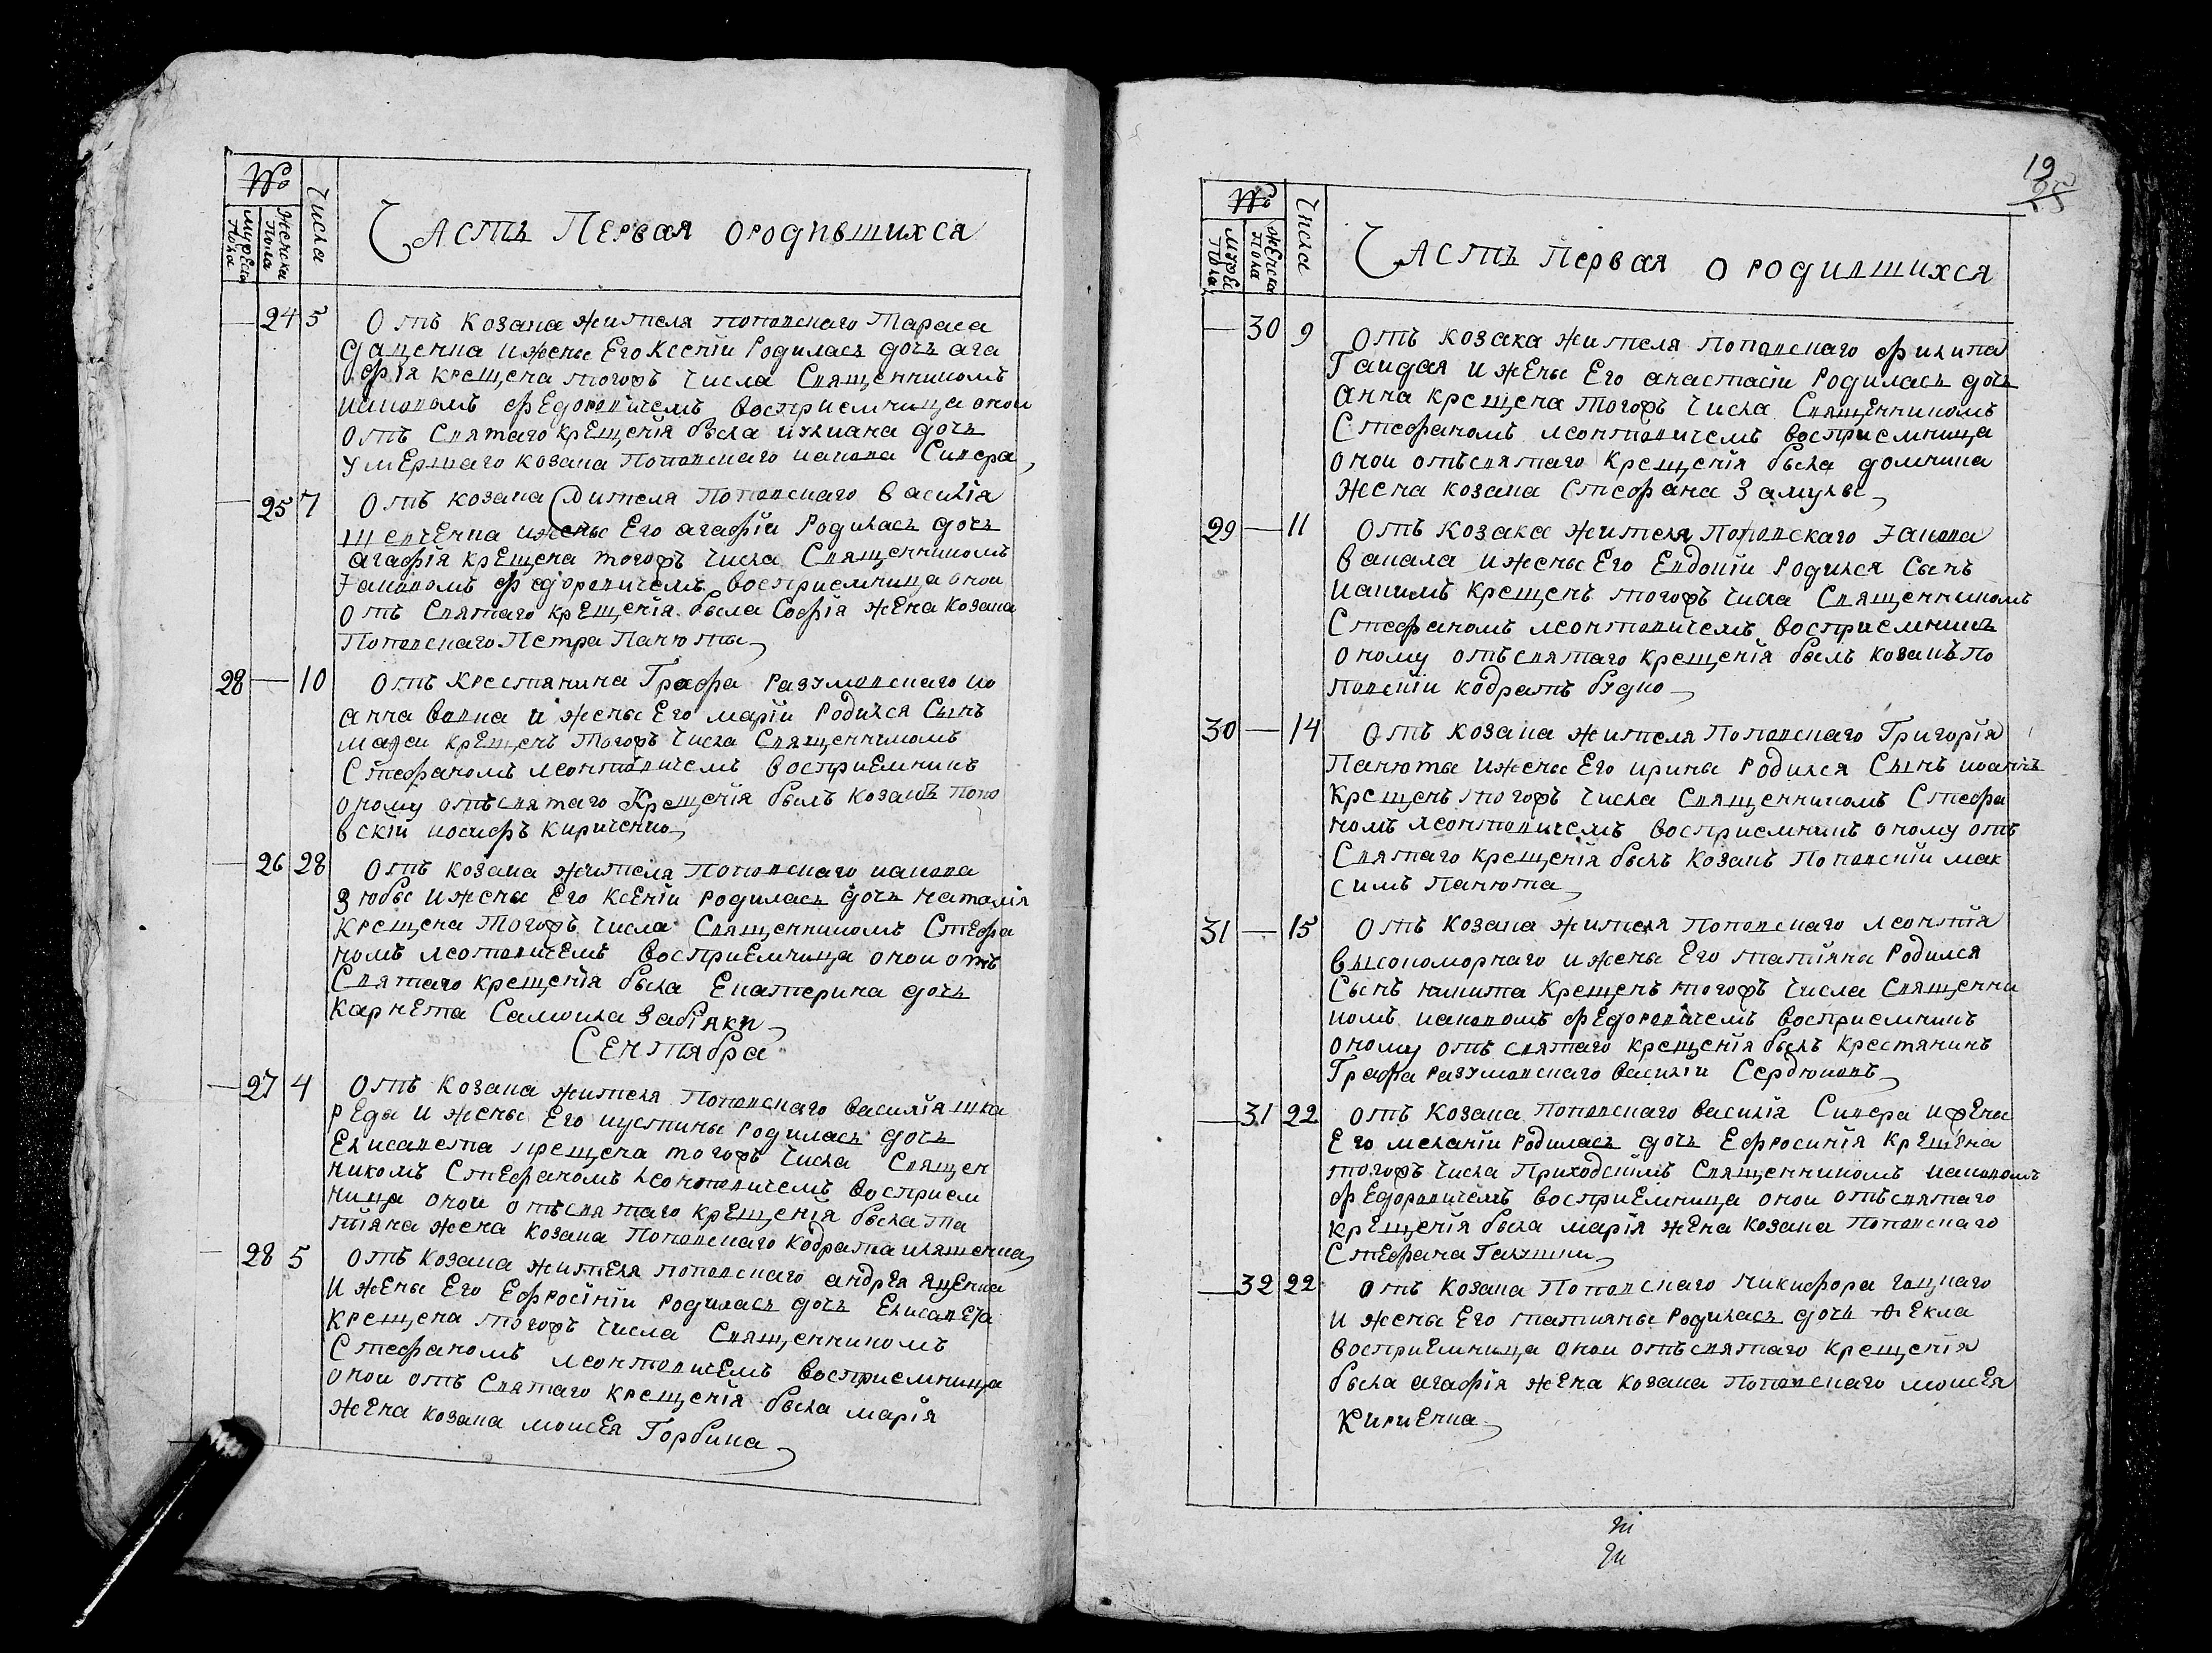 №
Числа
Женска Пола
Мужеска Пола
Часть Первая ородившихся
24 5 Отъ козака жителя поповскаго Тараса
Даценка ижены Его Ксеніи Родилась дочь ага
фія крещена тогожъ числа Священникомъ
иаковомъ федоровичемъ восприемница онои
отъ Святаго крещенія была иулиана дочь
умершаго козака поповскаго иакова Сикера
25 7 Отъ козака жителя поповскаго василія
шевченка ижены Его агафіи Родилась дочь
агафія крещена тогожъ числа Священникомъ
Іаковомъ федоровичемъ восприемница онои
отъ Святаго крещенія была Софія жена козака
Поповскаго Петра Панюты
28 10 Отъ крестянина Графа Разумовскаго ио
анна вовка и жены Его маріи Родился Сынъ
крещенъ тогожъ числа Священникомъ
Стефаномъ леонтовичемъ восприемникъ
оному отъ святаго Крещенія былъ козакъ попо
вскіи иосифъ кириченко
26 28 Отъ козака жителя Поповскаго иакова
Зюбы ижены Его Ксеніи Родилась дочь наталія
крещена тогожъ числа Священникомъ Стефа
номъ леотовичемъ восприемница онои отъ
Святаго крещенія была Екатерина дочь
карнета Самоила Забіяки
Сентября
27 4 Отъ козака жителя Поповскаго василія шка
реды и жены Его иустины Родилась дочь
Елисавета крещена тогожъ числа Священ
никомъ Стефаномъ леонтовичемъ восприем
ница онои отъ святаго крещенія была та
тіяна жена козака Поповскаго кодрата иляшенка
28 5 Отъ козака жителя поповскаго андрея яценка
И жены Его Ефросініи Родилась дочь Елисавефа
крещена тогожъ числа Священникомъ
Стефаномъ леонтовичемъ восприемница
онои отъ Святаго крещенія была марія
жена козака моисея Горбика
19
25
№
Числа
Женска Пола
Мужес Пола
Часть Первая о родившихся
30 9 Отъ козака жителя поповскаго филипа
Гаидая и жены Его анастасіи Родилась дочь
анна крещена тогожъ числа Священникомъ
Стефаномъ леонтовичемъ восприемница
онои отъ святаго крещенія была домникия
жена козака Стефана Замулы
29 11 Отъ козака жителя Поповскаго Іакова
вакала ижены Его Евдокіи Родился Сынъ
иакимъ крещенъ тогожъ числа Священникомъ
Стефаномъ леонтовичемъ восприемникъ
оному отъ святаго крещенія былъ козакъ по
повскіи кодратъ будко
30 14 Отъ козака жителя Поповскаго Григорія
Панюты ижены Его ирины Родился Сынъ иоаннъ
крещенъ тогожъ числа Священникомъ Стефа
номъ леонтовичемъ восприемникъ оному отъ
Святаго крещенія былъ козакъ Поповскіи мак
симъ Панюта
31 15 Отъ козака жителя Поповскаго леонтія
високоморнаго ижены Его татіяна Родился
Сынъ никита крещенъ тогожъ числа Священни
комъ иаковомъ федоровичемъ восприемникъ
оному отъ святаго крещенія былъ крестянинъ
Графа Разумовскаго василіи Сердюковъ
31 22 отъ козака Поповскаго василія Сикера ижены
Его меланіи Родилась дочь Ефросинія крещена
тогожъ числа Приходскимъ Священникомъ иаковомъ
федоровичемъ восприемница онои отъ святаго
крещенія была марія жена козака Поповскаго
Стефана Галушки
32 22 отъ козака Поповскаго никифора гоцкаго
и жены Его татияны Родилась дочь Фекла
восприемница онои отъ святаго крещенія
была агафія жена козака Поповскаго моисея
Кириенка